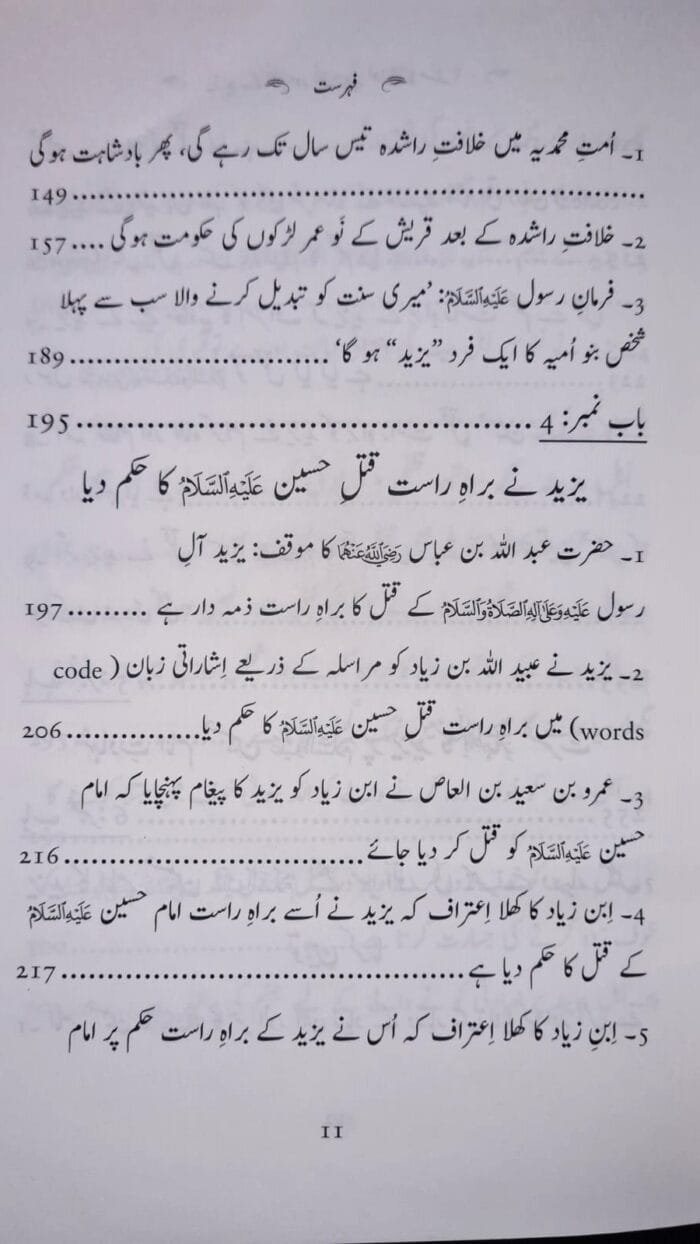 فہرست
1۔ اُمتِ محمدیہ میں خلافتِ راشدہ تیس سال تک رہے گی، پھر بادشاہت ہوگی
149
2۔ خلافتِ راشدہ کے بعد قریش کے نَو عمر لڑکوں کی حکومت ہوگی .... 157
3۔ فرمانِ رسول عَلَيْهِ ٱلسَّلَامُ: ’میری سنت کو تبدیل کرنے والا سب سے پہلا
شخص بنو اُمیہ کا ایک فرد ”یزید“ ہو گا‘ .............................. 189
باب نمبر: 4 .......................................... 195
یزید نے براہِ راست قتلِ حسین عَلَيْهِ ٱلسَّلَامُ کا حکم دیا
1۔ حضرت عبد اللہ بن عباس رَضِيَ ٱللَّهُ عَنْهُمَا کا موقف: یزید آلِ
رسول عَلَيْهِ وَعَلَىٰ آلِهِ ٱلصَّلَاةُ وَٱلسَّلَامُ کے قتل کا براہِ راست ذمہ دار ہے ......... 197
2۔ یزید نے عبید اللہ بن زیاد کو مراسلہ کے ذریعے اِشاراتی زبان (code
words) میں براہِ راست قتلِ حسین عَلَيْهِ ٱلسَّلَامُ کا حکم دیا............... 206
3۔ عمرو بن سعید بن العاص نے ابن زیاد کو یزید کا پیغام پہنچایا کہ امام
حسین عَلَيْهِ ٱلسَّلَامُ کو قتل کر دیا جائے ................................. 216
4۔ اِبن زیاد کا کھلا اِعتراف کہ یزید نے اُسے براہِ راست امام حسین عَلَيْهِ ٱلسَّلَامُ
کے قتل کا حکم دیا ہے ............................................ 217
5۔ اِبنِ زیاد کا کھلا اِعتراف کہ اُس نے یزید کے براہِ راست حکم پر امام
11